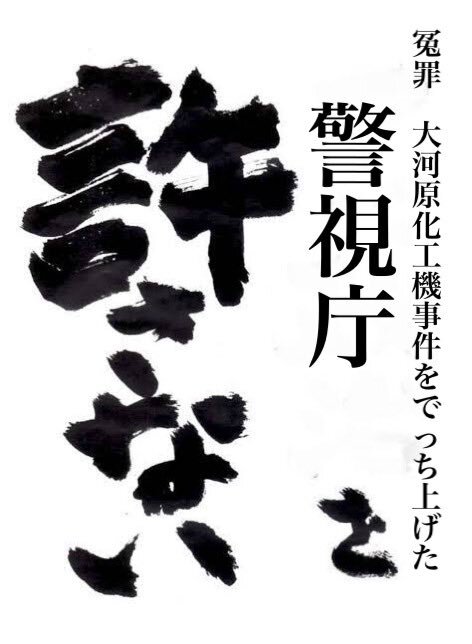 冤罪 大河原化工機事件をでっち上げた
警視庁を
許さない